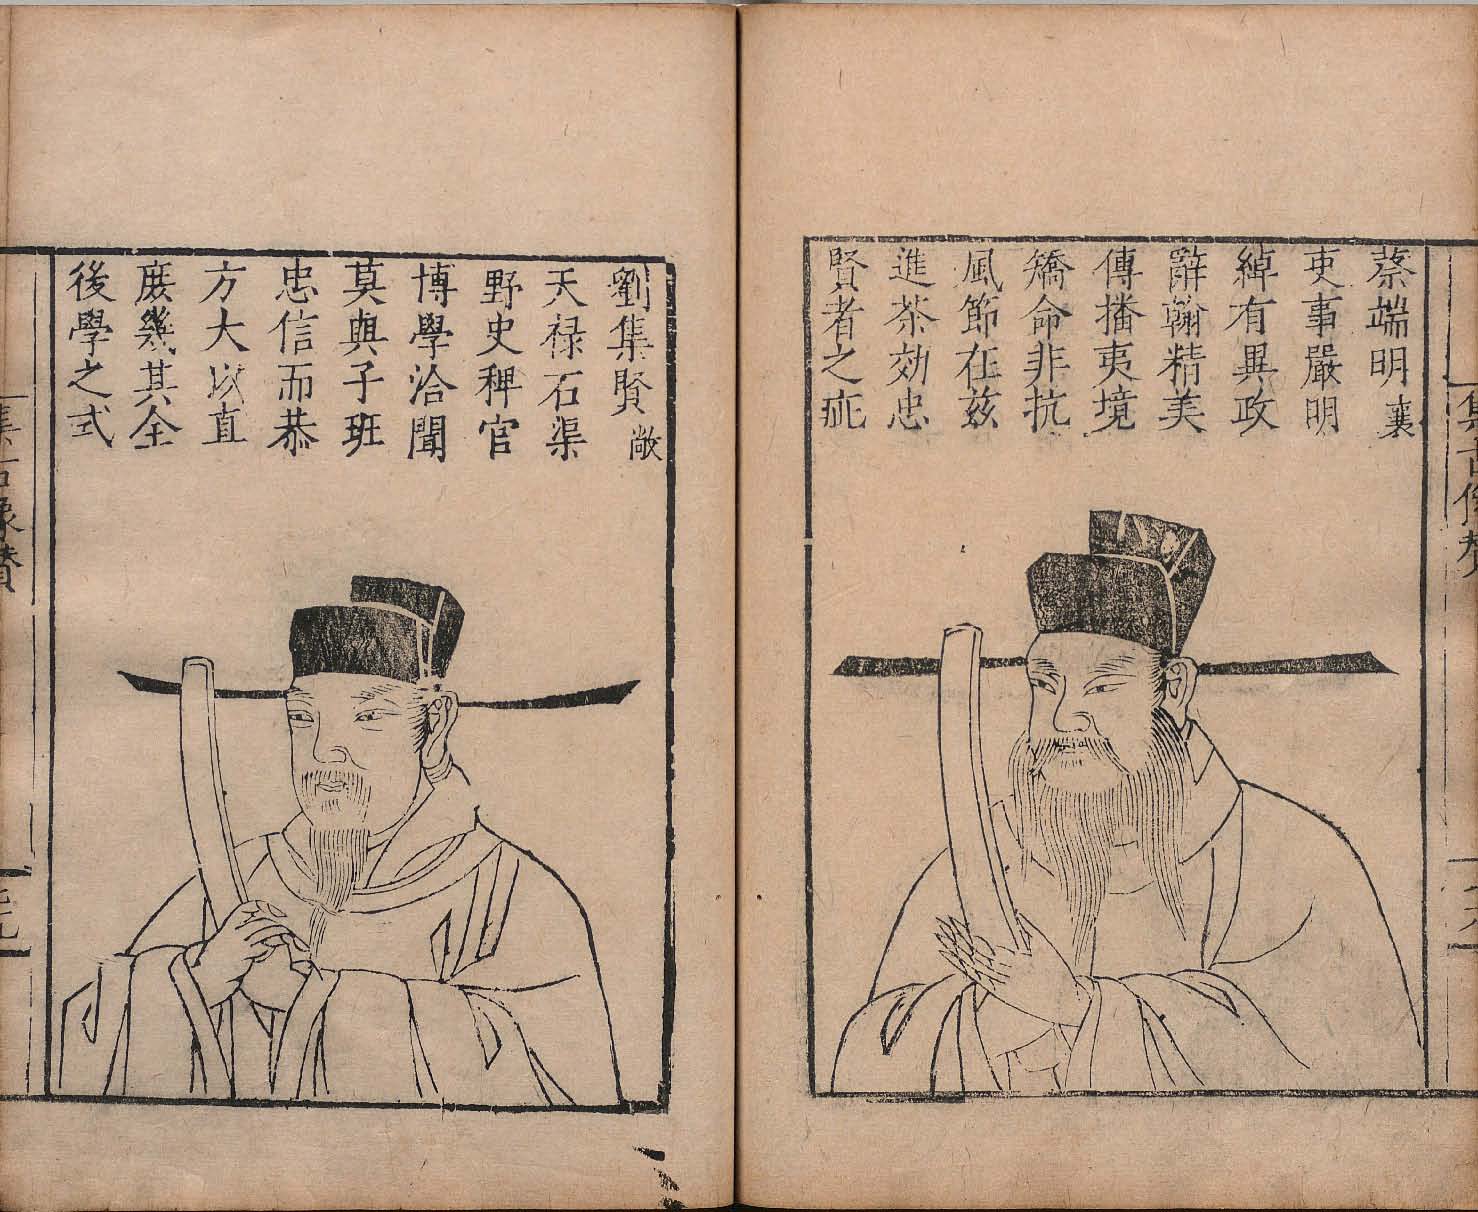 蔡端明 襄
吏事嚴明
綽有異政
辭翰精美
傳播夷境
矯命非抗
風節在兹
進茶効忠
賢者之疵
劉集賢 敞
天禄石渠
野史稗官
博學洽聞
莫與子班
忠信而恭
方大以直
庶幾其全
後學之式
集古像贊
集古像贊